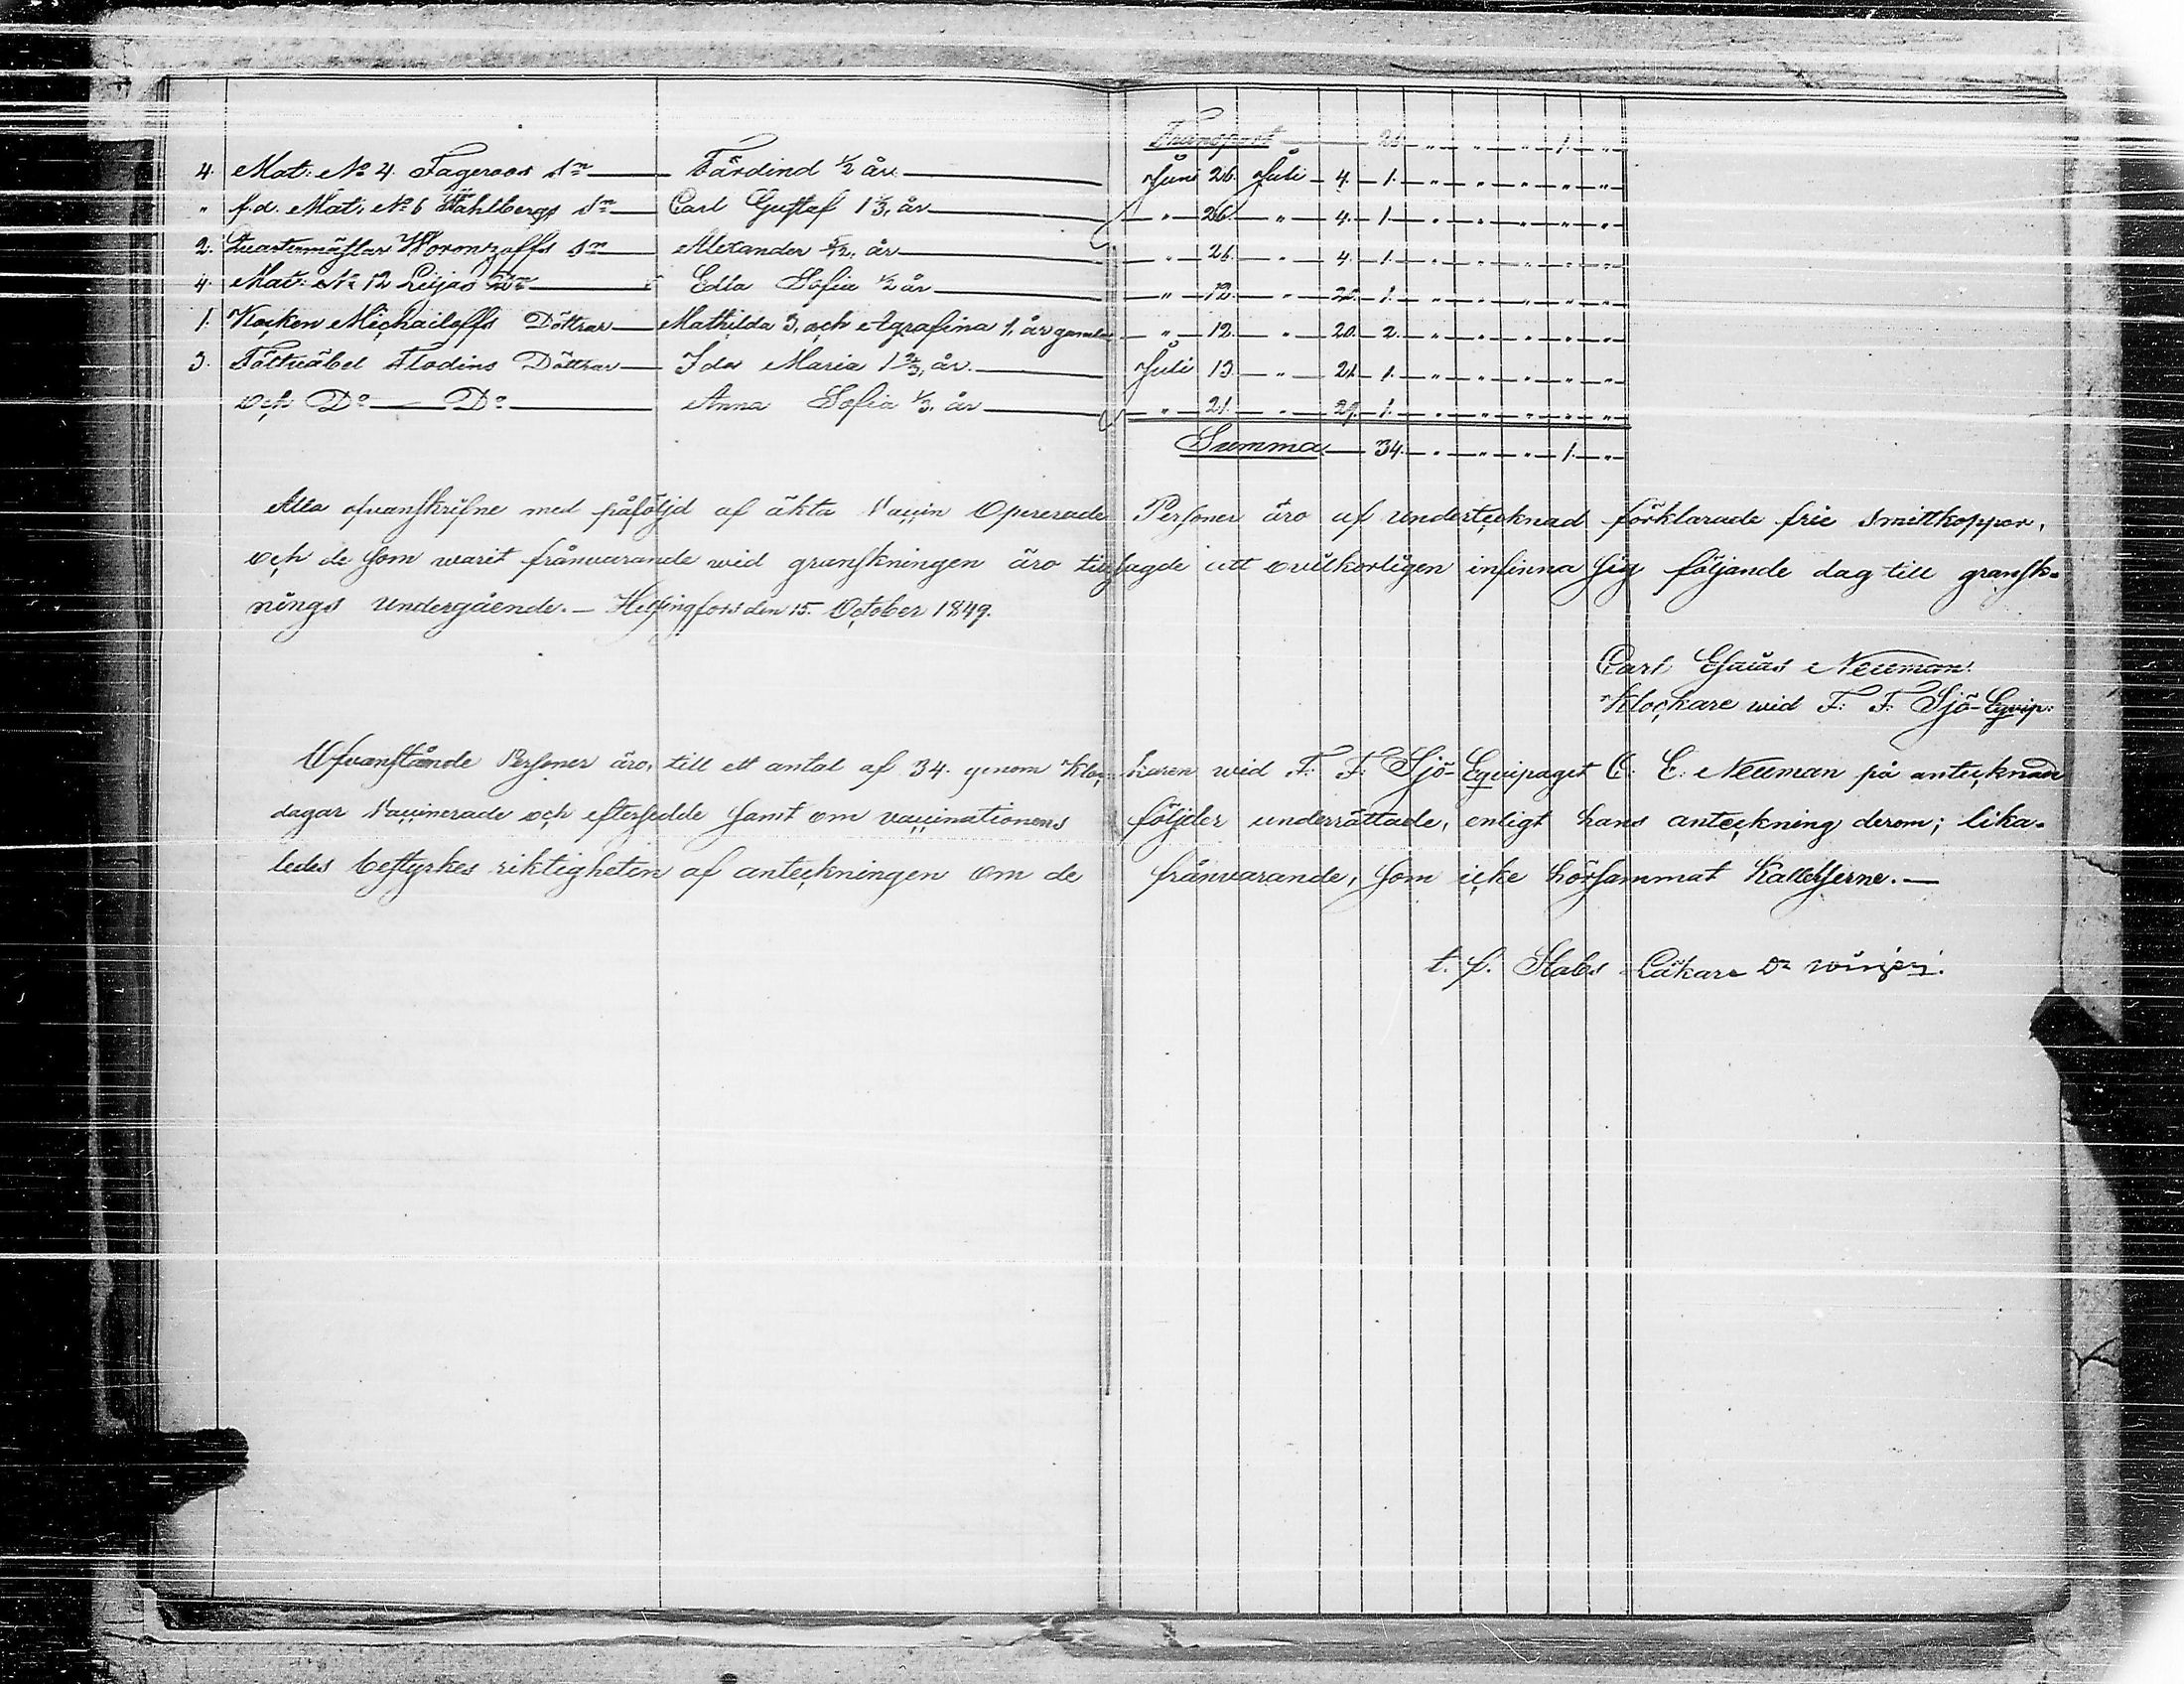 Transport — 26 " " " 1. "
4. Mat: No 4. Fageroos Sn — Färdind 1/2 år. — Juni 26. Juli 4. 1. " " " " "
" f.d. Mat. No 6 Ståhlbergs Sn — Carl Gustaf 1 1/3, år — " 26 " 4. 1. " " " " "
2. Quartermästar Woronzoffs Sn — Alexander 5/12, år — " 26. " 4. 1. " " " " "
4. Mat: No 12 Liljas Dr — Edla Sofia 1/2 år — " 12. " 20. 1. " " " " "
1. Kocken Michailoffs Döttrar — Mathilda 3, och Agrafina 1, år gamla — " 12. " 20. 2. " " " " "
3. Fältwäbel Flodins Döttrar — Ida Maria 1 2/3, år. — Juli 13. " 21. 1. " " " " "
och Do — Do — Anna Sofia 1/3. år — " 21. " 29. 1. " " " " "
Summa — 34. " " " 1. "
Alla ofvanskrifne med påföljd af äkta Vaccin Opererade Personer äro af undertecknad förklarade frie Smittkoppor,
och de som warit frånvarande wid granskningen äro tillsagde att ovilkorligen infinna sig följande dag till gransk-
nings undergående. — Helsingfors den 15. October 1849.
Carl Esaias Neuman
Klockare wid F: F: Sjö-Equip:
Ofvanstående Personer äro, till ett antal af 34. genom Kloc- karen wid F: F: Sjö-Equipaget C: E: Neuman på antecknade
dagar Vaccinerade och eftersedde samt om vaccinationens följder underrättade, enligt hans anteckning derom; lika-
ledes bestyrkes riktigheten af anteckningen om de frånvarande, som icke hörsammat Kallelserne. —
t. f. Stabs Läkare Dr